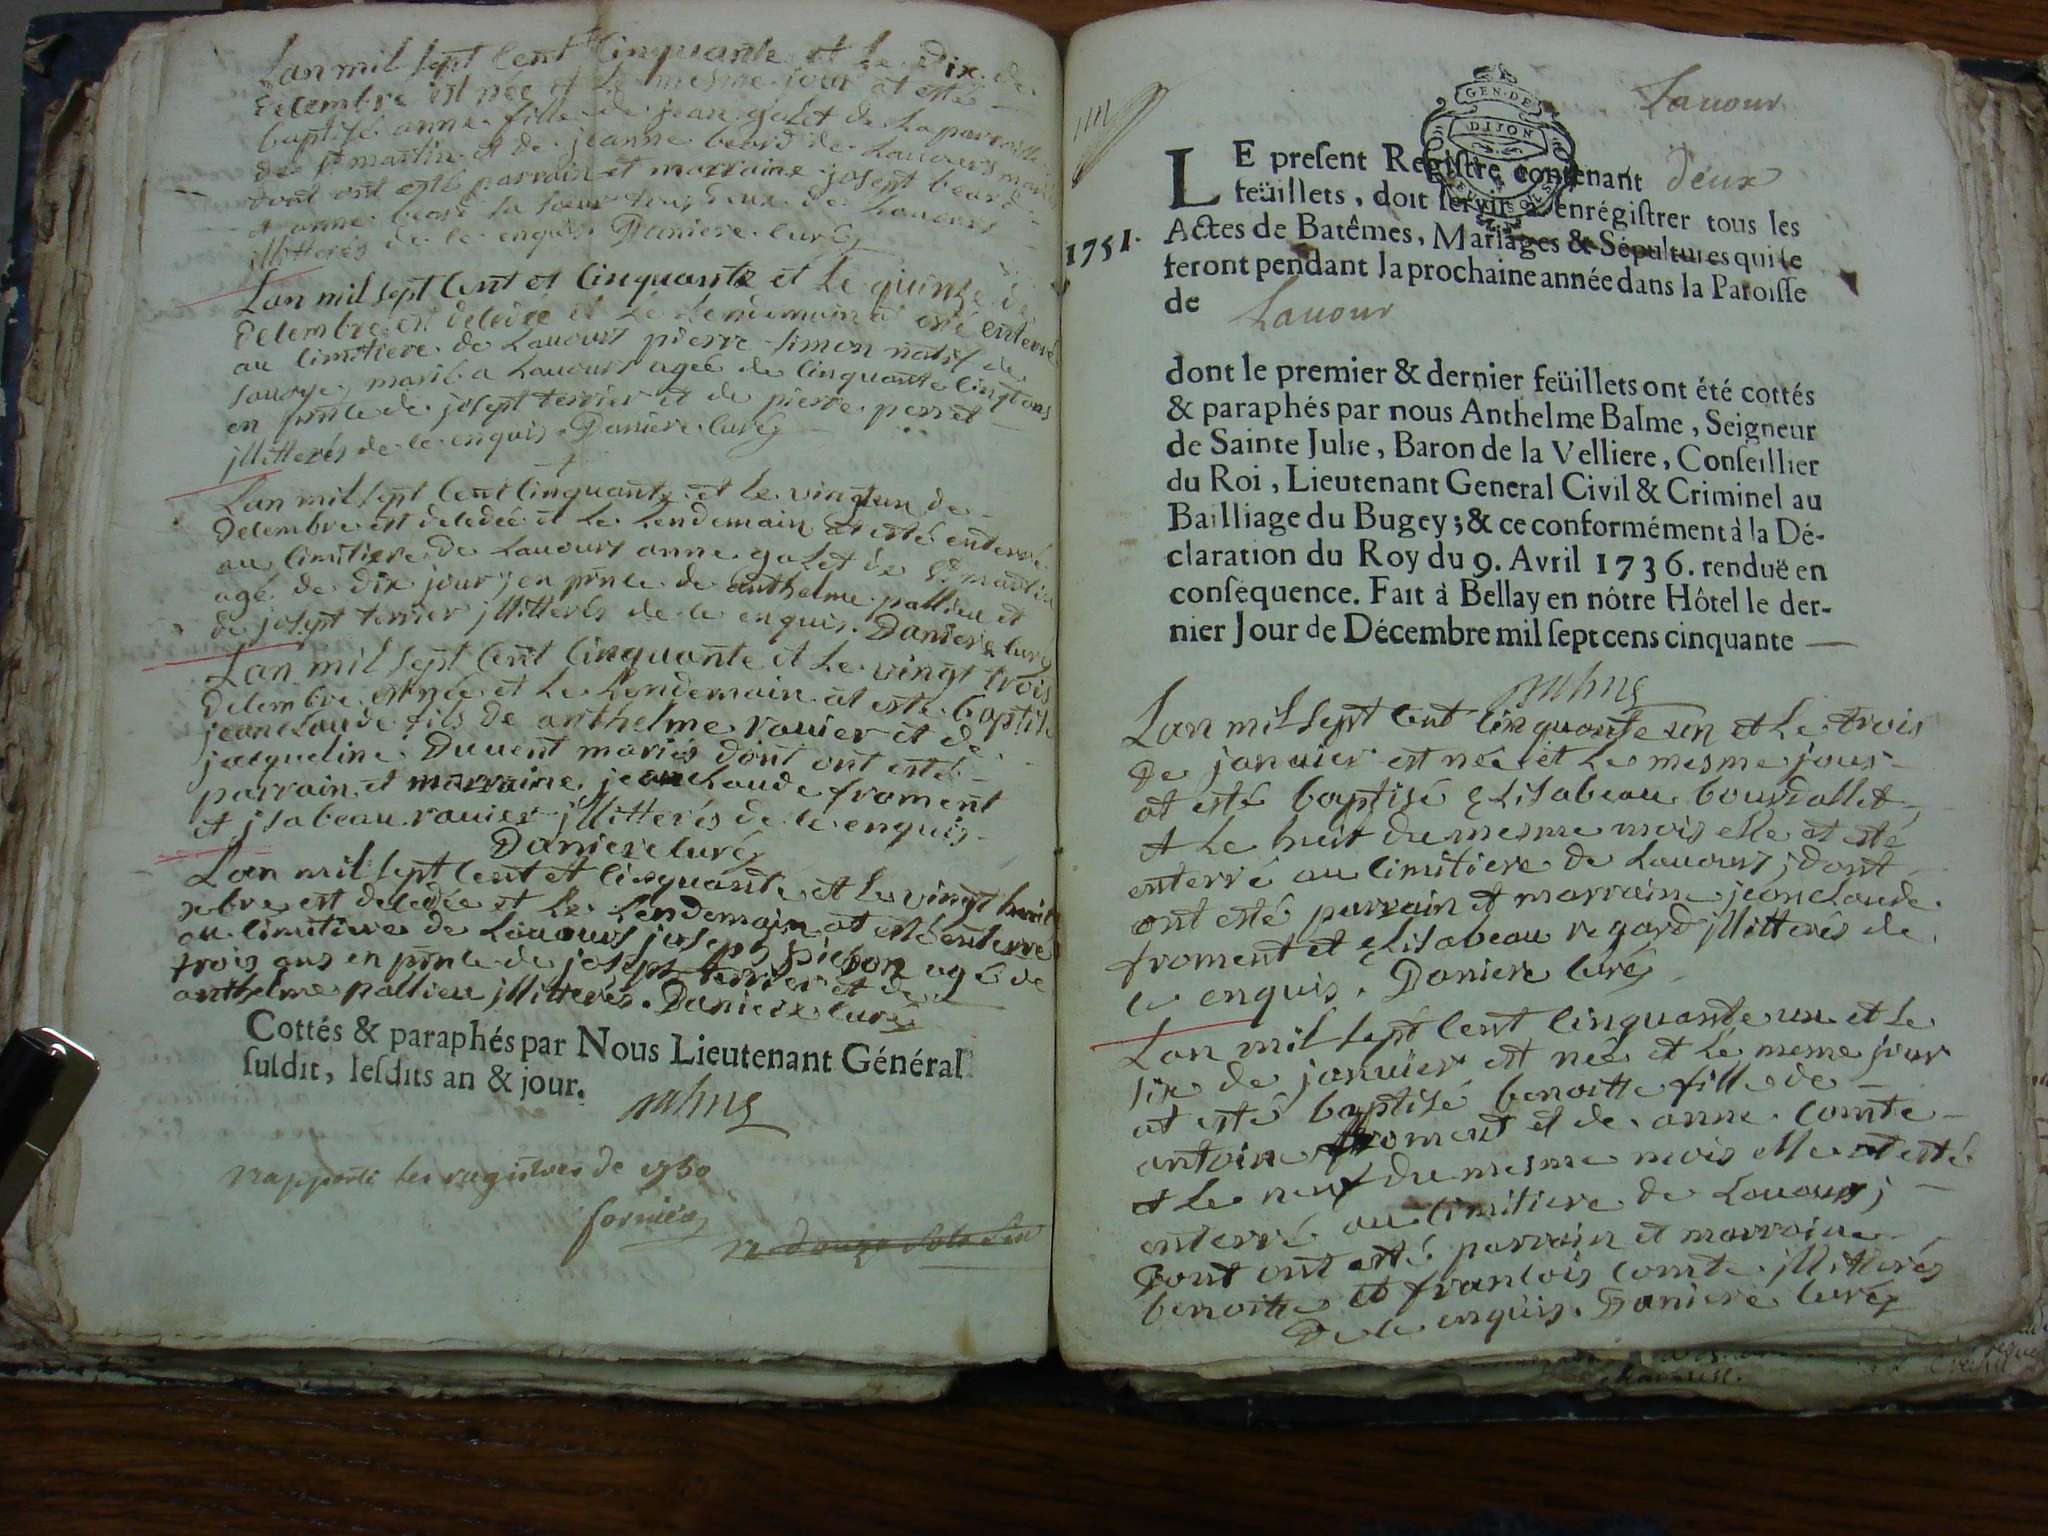 Lan mil sept Cent Cinquante et le dix de
decembre est née et le mesme jour at esté
baptisé anne fille de jean galet de la parroisse
de st martin et de jeanne beard de Lauours mariés
dont ont esté parrain et marraine josept beard
et anne beard sa soeur tous deux de Lauours
jllitterés de ce enquis. Daniere Curé
Lan mil sept Cent et Cinquante et le quinze de
decembre est decedée et le lendemain at esté enterré
au Cimitiere de Lauours pierre simon natif de
sauoye, marié a Lauours agée de Cinquante Cinq ans
en pnce de josept terrier et de pierre perret
jllitterés de ce enquis. Daniere Curé
Lan mil sept Cent Cinquante et le vingt un de
decembre est decedée et le lendemain at esté enterré
au Cimitiere de Lauours anne galet de st martin
agé de dix jour, en pnce de anthelme pallieu et
de josept terrier jllitterés de ce enquis. Daniere Curé
Lan mil sept Cent Cinquante et le vingt trois
decembre est née et le lendemain at esté baptisé
jeanclaude fils de anthelme rauier et de
jacqueline Duuent mariés dont ont esté
parrain et marraine jeanclaude froment
et jsabeau rauier jllitterés de ce enquis
Daniere Curé
Lan mil sept Cent et Cinquante et le vingt huit
xbre est decedée et le lendemain at esté enterré
au Cimitiere de Lauours josept pichon agé de
trois ans en pnce de josept terrier et de
anthelme pallieu jllitterés. Daniere Curé
Cottés & paraphés par Nous Lieutenant Général
susdit, lesdits an & jour.
rapporté les registres de 1750
Lauour
GEN·DE
DIJON
LE present Registre contenant deux
feüillets, doit servir à enrégistrer tous les
1751.
Actes de Batêmes, Mariages & Sépultures qui se
feront pendant la prochaine année dans la Paroisse
de Lauour
dont le premier & dernier feüillets ont été cottés
& paraphés par nous Anthelme Balme, Seigneur
de Sainte Julie, Baron de la Velliere, Conseillier
du Roi, Lieutenant General Civil & Criminel au
Bailliage du Bugey; & ce conformément à la Dé-
claration du Roy du 9. Avril 1736. renduë en
consequence. Fait à Bellay en nôtre Hôtel le der-
nier Jour de Décembre mil sept cens cinquante
Lan mil sept Cent Cinquante un et le trois
de januier est née et le mesme jour
at esté baptisé Elisabeau bourdallet
et le huit du mesme mois elle at esté
enterré au Cimitiere de Lauours, dont
ont esté parrain et marraine jeanclaude
froment et Elisabeau regard jllitterés de
ce enquis. Daniere Curé
Lan mil sept Cent Cinquante un et le
six de januier est née et le meme jour
at esté baptisé benoitte fille de
antoine froment et de anne Comte
et le neuf du mesme mois elle at esté
enterré au Cimitiere de Lauours;
Dont ont esté parrain et marraine
benoitte et francois Comte jllitterés
De ce enquis. Daniere Curé